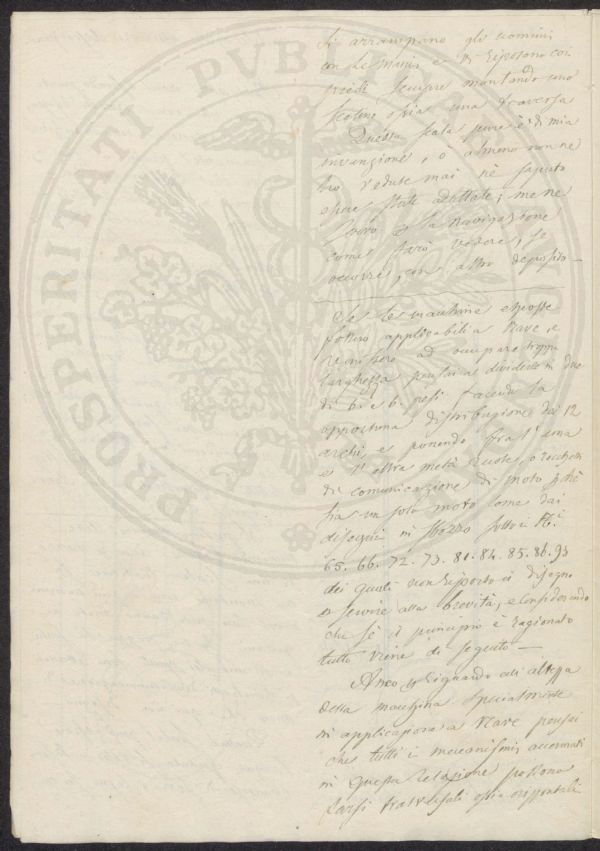 si arrampano gli uomini
con le mani e si riposano coi
piedi sempre montando uno
scalino ossia una traversa
Questa scala pure è di mia
invenzione, o almeno non ne
ho vedute mai nè saputo
essere state adottate; me ne
servo la navigazione
come farò vedere, se
occorre, con altro deposito —
Se le macchine esposte
fossero applicabili a Nave, e
venissero ad occupare troppa
larghezza pensai a dividerle in due
di 6. e 6. pesi facendo la
opportuna distribuzione dei 12
archi, e ponendo fra l'una
e l'altra metà ruote, o rocchetti
di comunicazione di moto
sia un solo moto come dai
disegni in sbozzo sotto i N.i
65. 66. 72. 73. 81. 84. 85. 86. 93
dei quali non riporto il disegno
servire alla brevità, e considerando
che se il principio è ragionato
tutto viene di seguito —
Anco riguardo all'altezza
della macchina specialmente
in applicazione a Nave pensai
che tutti i meccanismi accennati
in questa relazione possono
farsi trasversali ossia orizzontali
PROSPERITATI PVBLICAE